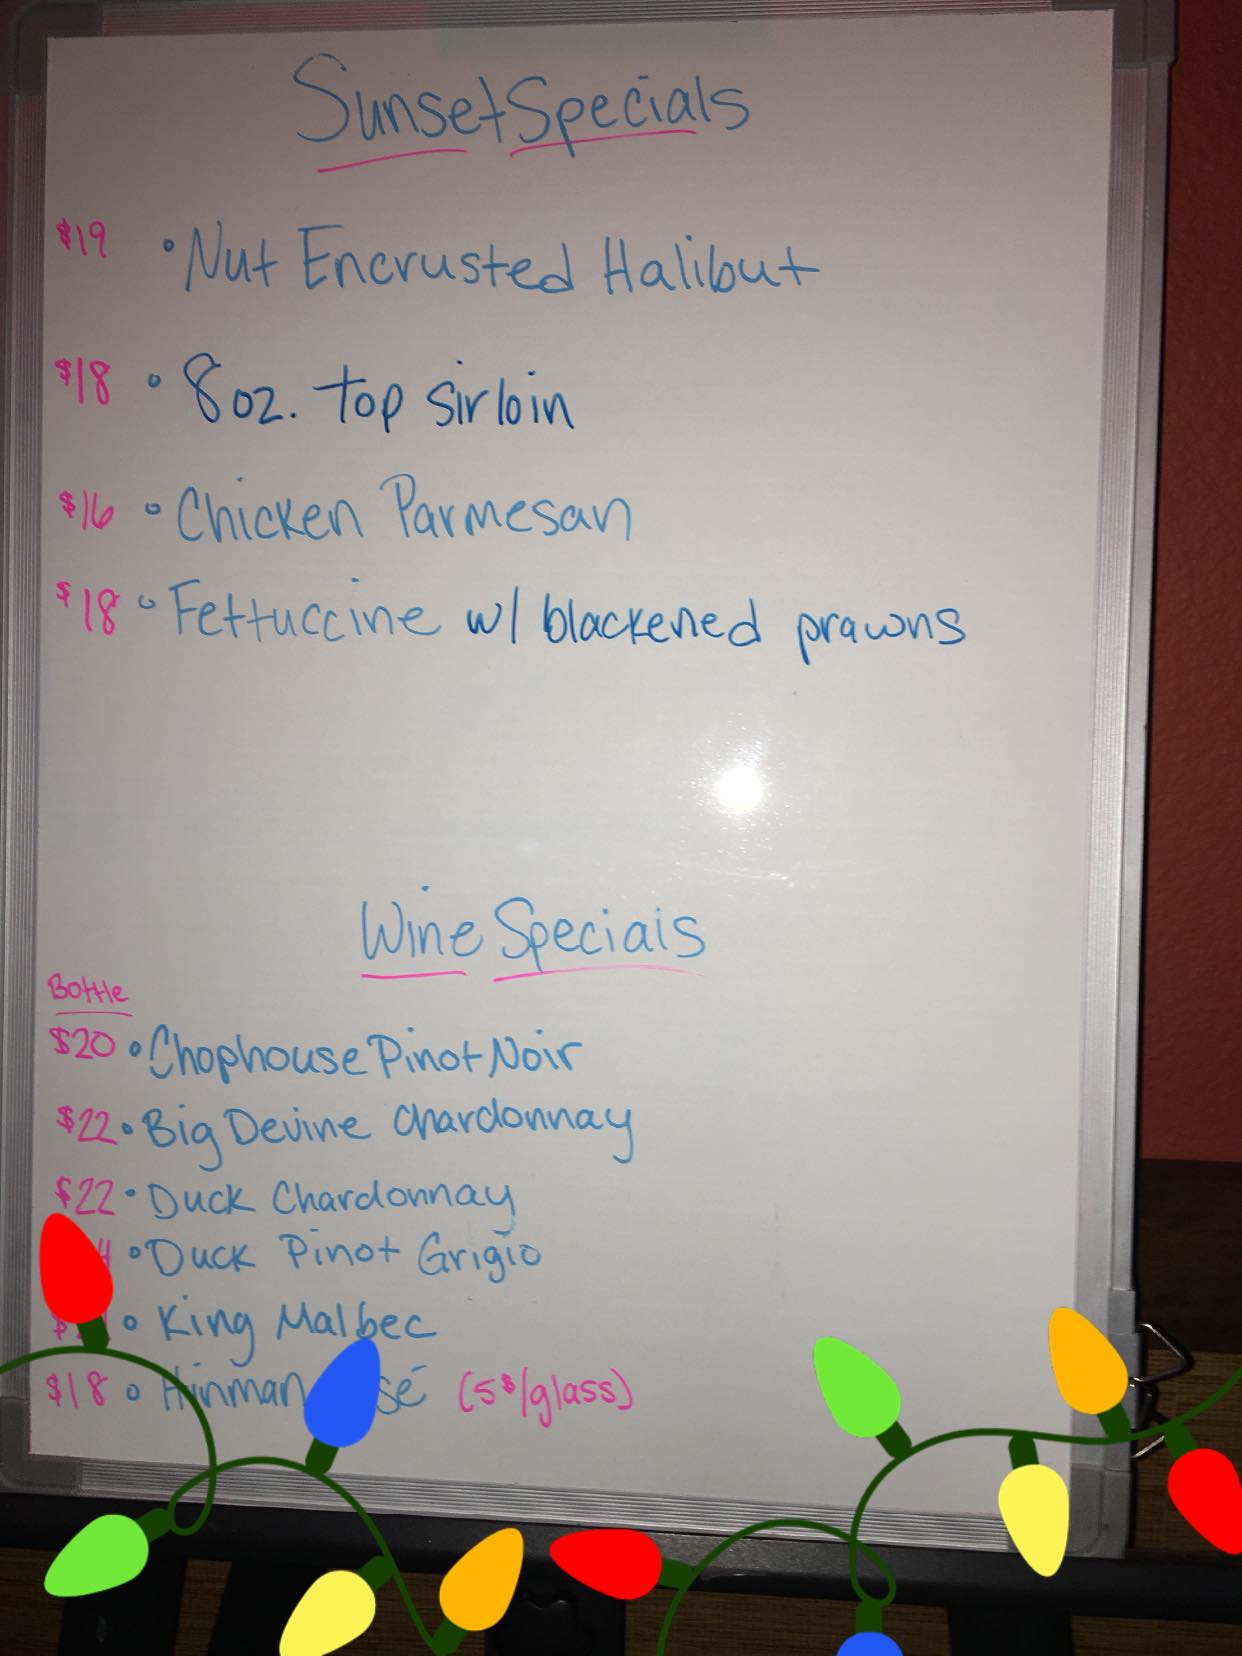 Sunset Specials
$19 • Nut Encrusted Halibut
$18 • 8oz. top sirloin
$16 • Chicken Parmesan
$18 • Fettuccine w/ blackened prawns
Wine Specials
Bottle
$20 • Chophouse Pinot Noir
$22 • Big Devine Chardonnay
$22 • Duck Chardonnay
• Duck Pinot Grigio
• King Malbec
$18 • Hinman (5$/glass)